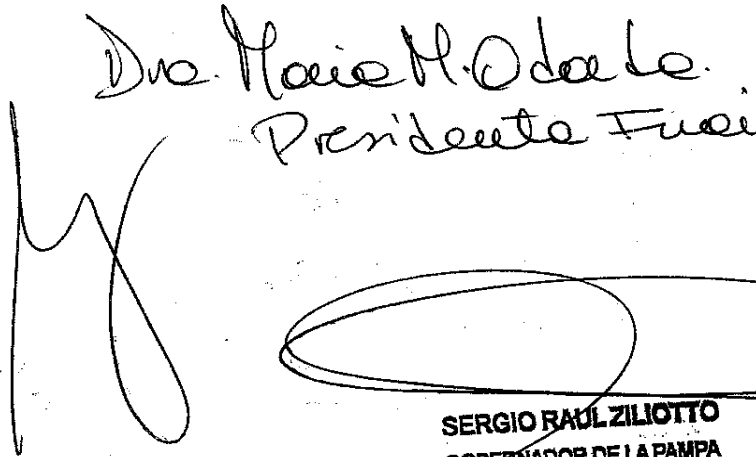 Dra. María M. Odarda.
Presidenta Inai
SERGIO RAUL ZILIOTTO
GOBERNADOR DE LA PAMPA